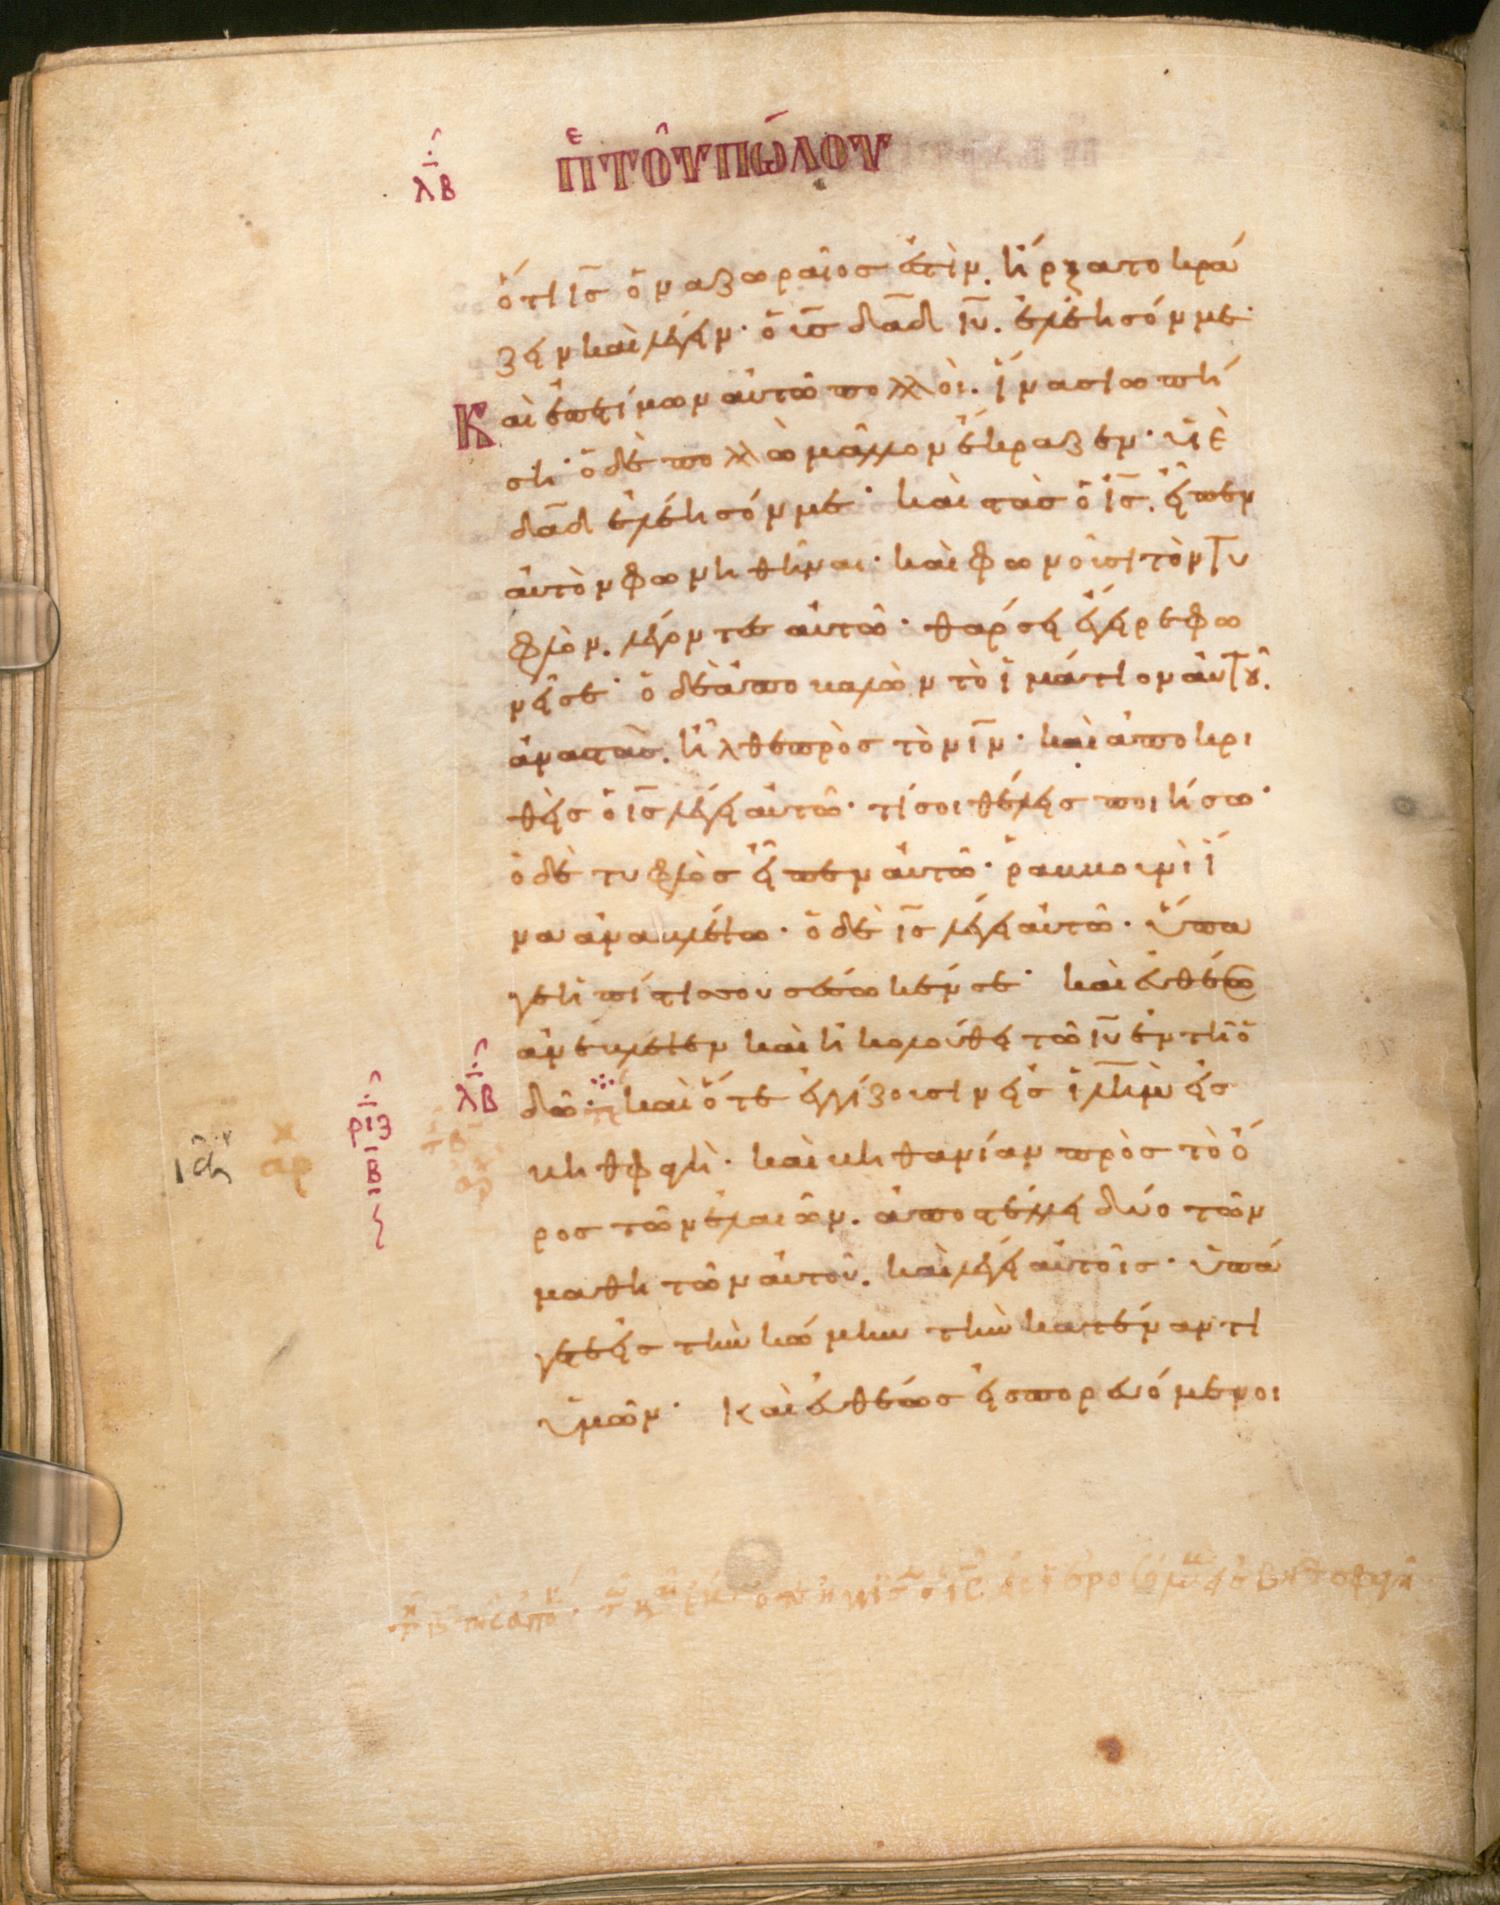 λβ πε τοῦ πώλου
ὅτι ις̅ ὁ ναζωραῖος ἐστὶν. ἤρξατο κρά
ζειν καὶ λέγειν· ὁ υς̅ δαδ̅ ιυ̅. ἐλέησόν με·
Καὶ ἐπετίμων αὐτῶ πολλοὶ. ἵνα σιωπή
ση· ὁ δὲ πολλῶ μᾶλλον ἔκραζεν· υἱὲ
δαδ̅ ἐλέησόν με· καὶ στὰς ὁ ις̅. εἶπεν
αὐτὸν φωνηθῆναι· καὶ φωνοῦσι τὸν τυ
φλὸν. λέγοντες αὐτῶ· θάρσει ἔγειρε φω
νεῖ σε· ὁ δὲ ἀποβαλὼν τὸ ἱμάτιον αὐτοῦ.
ἀναστὰς. ἦλθε πρὸς τὸν ιν̅· καὶ ἀποκρι
θεὶς ὁ ις̅ λέγει αὐτῶ· τί σοι θέλεις ποιήσω·
ὁ δὲ τυφλὸς εἶπεν αὐτῶ· ῥαββουνὶ ἵ
να ἀναβλέψω· ὁ δὲ ις̅ λέγει αὐτῶ· ὕπα
γε ἡ πίστις σου σέσωκέν σε· καὶ εὐθέως
ἀνέβλεψεν καὶ ἠκολούθει τῶ ιυ̅ ἐν τῆ ὁ
λβ δῶ· καὶ ὅτε ἐγγίζουσιν εἰς ιλημ̅ εἰς
ριζ β βηθφαγὴ· καὶ βηθανίαν πρὸς τὸ ὄ
αρ ρος τῶν ἐλαιῶν. ἀποστέλλει δύο τῶν
μαθητῶν αὐτοῦ. καὶ λέγει αὐτοῖς· ὑπά
γετε εἰς τὴν κώμην τὴν κατέναντι
ὑμῶν· Καὶ εὐθέως εἰσπορευόμενοι